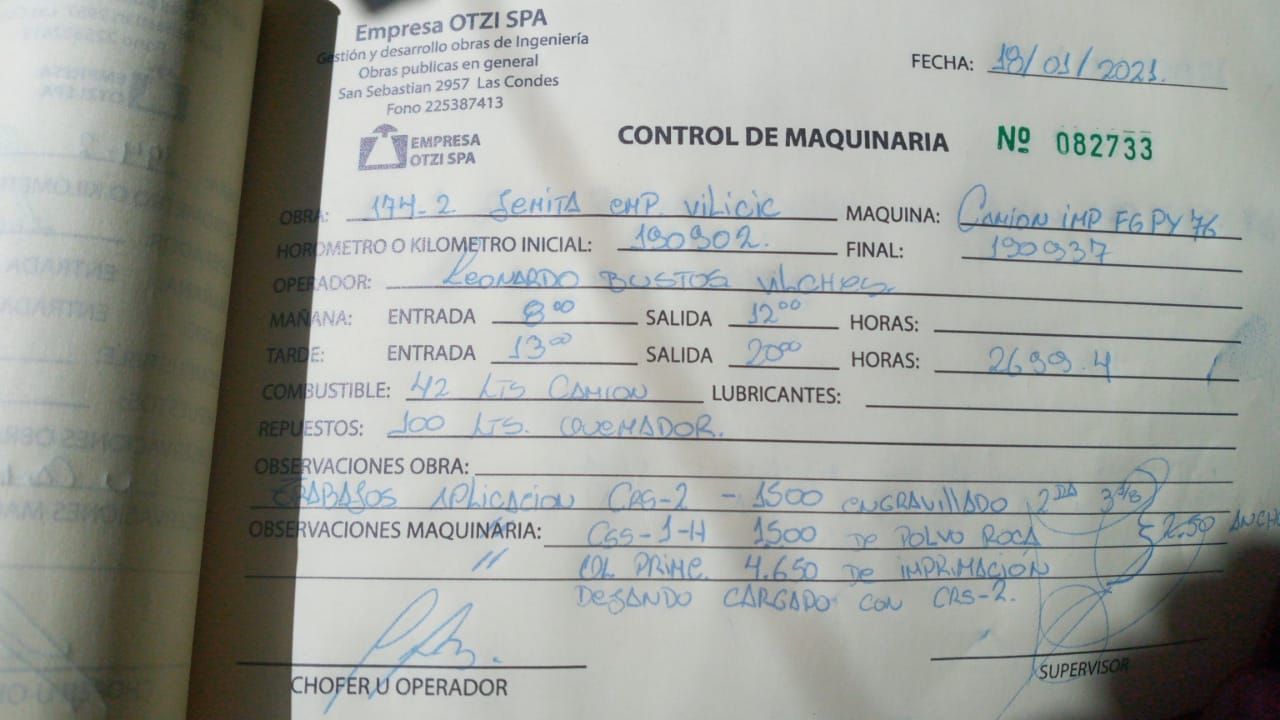 Empresa OTZI SPA
Gestión y desarrollo obras de Ingeniería
Obras publicas en general
San Sebastian 2957 Las Condes
Fono 225387413
EMPRESA
OTZI SPA
FECHA: 18/01/2021.
CONTROL DE MAQUINARIA Nº 082733
OBRA: 174-2 SEMITA EMP. VILICIC MAQUINA: CAMION IMP FGPY 76
HOROMETRO O KILOMETRO INICIAL: 190902. FINAL: 190937
OPERADOR: LEONARDO BUSTOS VILCHES
MAÑANA: ENTRADA 8°° SALIDA 12°° HORAS:
TARDE: ENTRADA 13°° SALIDA 20°° HORAS: 2699.4
COMBUSTIBLE: 42 LTS CAMION LUBRICANTES:
REPUESTOS: 100 LTS. QUEMADOR.
OBSERVACIONES OBRA:
TRABAJOS APLICACION CRS-2 - 1500 ENGRAVILLADO 2DA 3/8
OBSERVACIONES MAQUINARIA: CSS-1-H 1500 DE POLVO ROCA } 2.50 ANCHO
" COL PRIME. 4.650 DE IMPRIMACIÓN
DEJANDO CARGADO CON CRS-2.
CHOFER U OPERADOR
SUPERVISOR